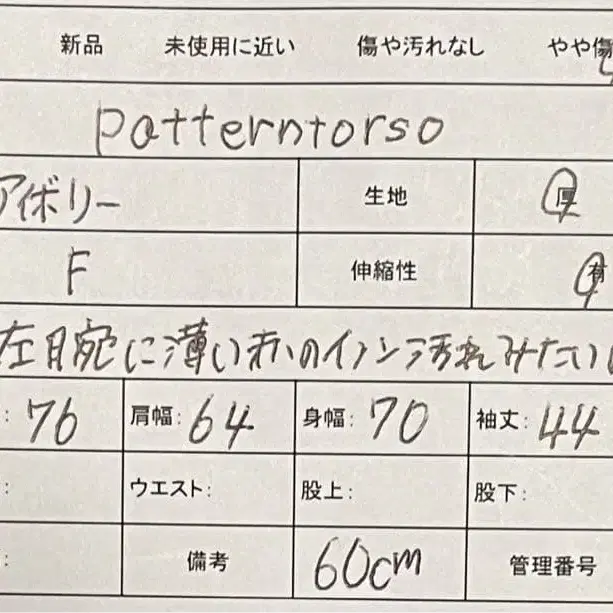 新品 未使用に近い 傷や汚れなし やや傷
patterntorso
アイボリー 生地 厚
F 伸縮性 有
に薄い赤いのインク汚れみたい
: 76 肩幅: 64 身幅: 70 袖丈: 44
: ウエスト: 股上: 股下:
: 備考 60cm 管理番号